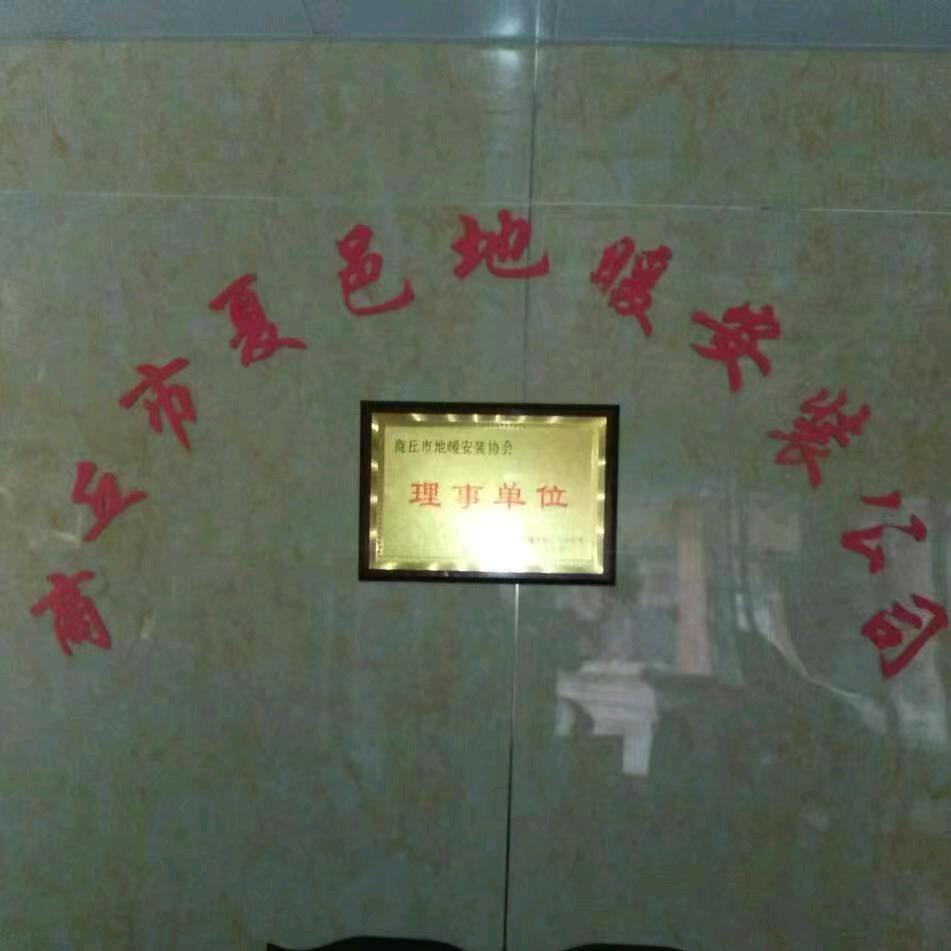 商丘市夏邑地暖安装公司
商丘市地暖安装协会
理事单位